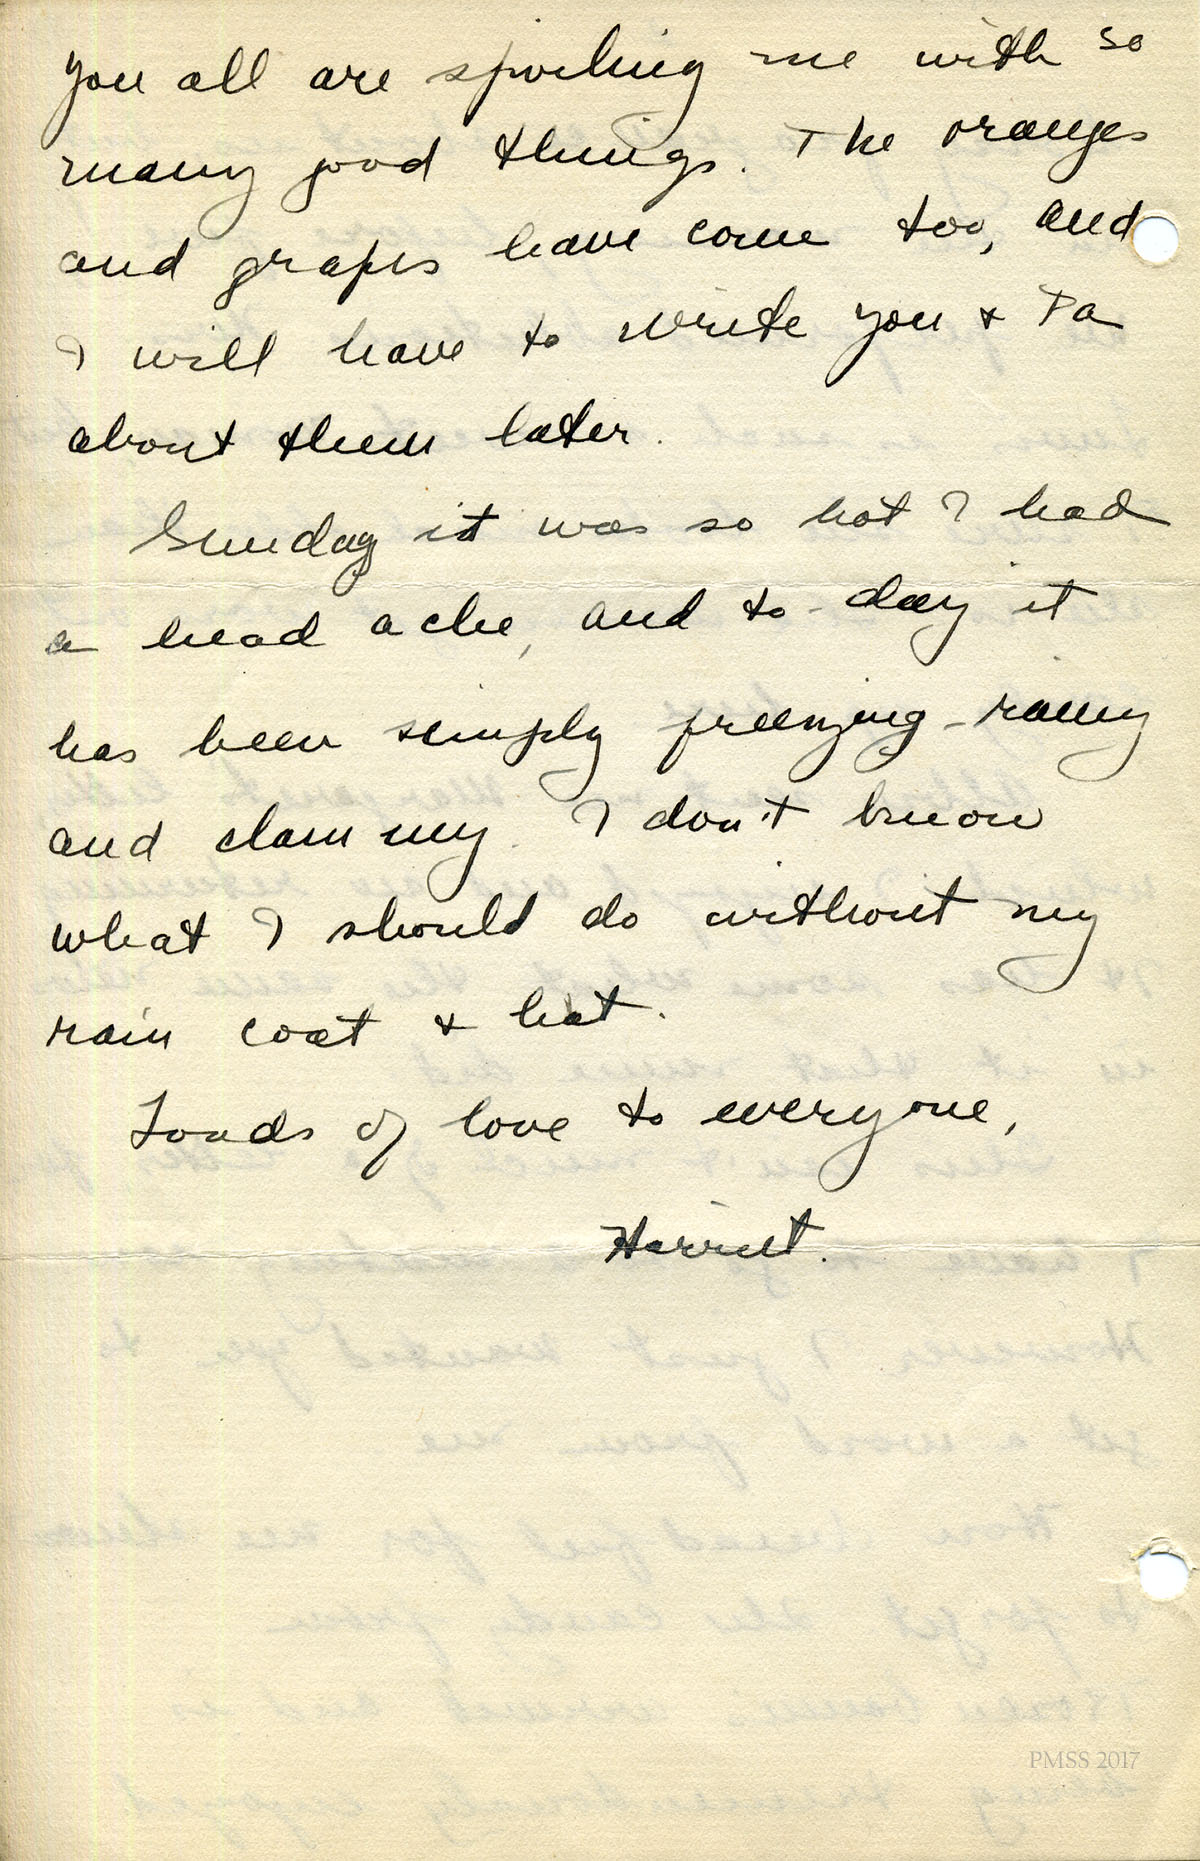 you all are spoiling me with so
many good things. The oranges
and grapes have come too, and
I will have to write you & Pa
about them later.
Sunday it was so hot I had
a head ache, and to-day it
has been simply freezing - rainy
and clammy. I don't know
what I should do without my
rain coat & hat.
Loads of love to everyone,
Harriet.
PMSS 2017